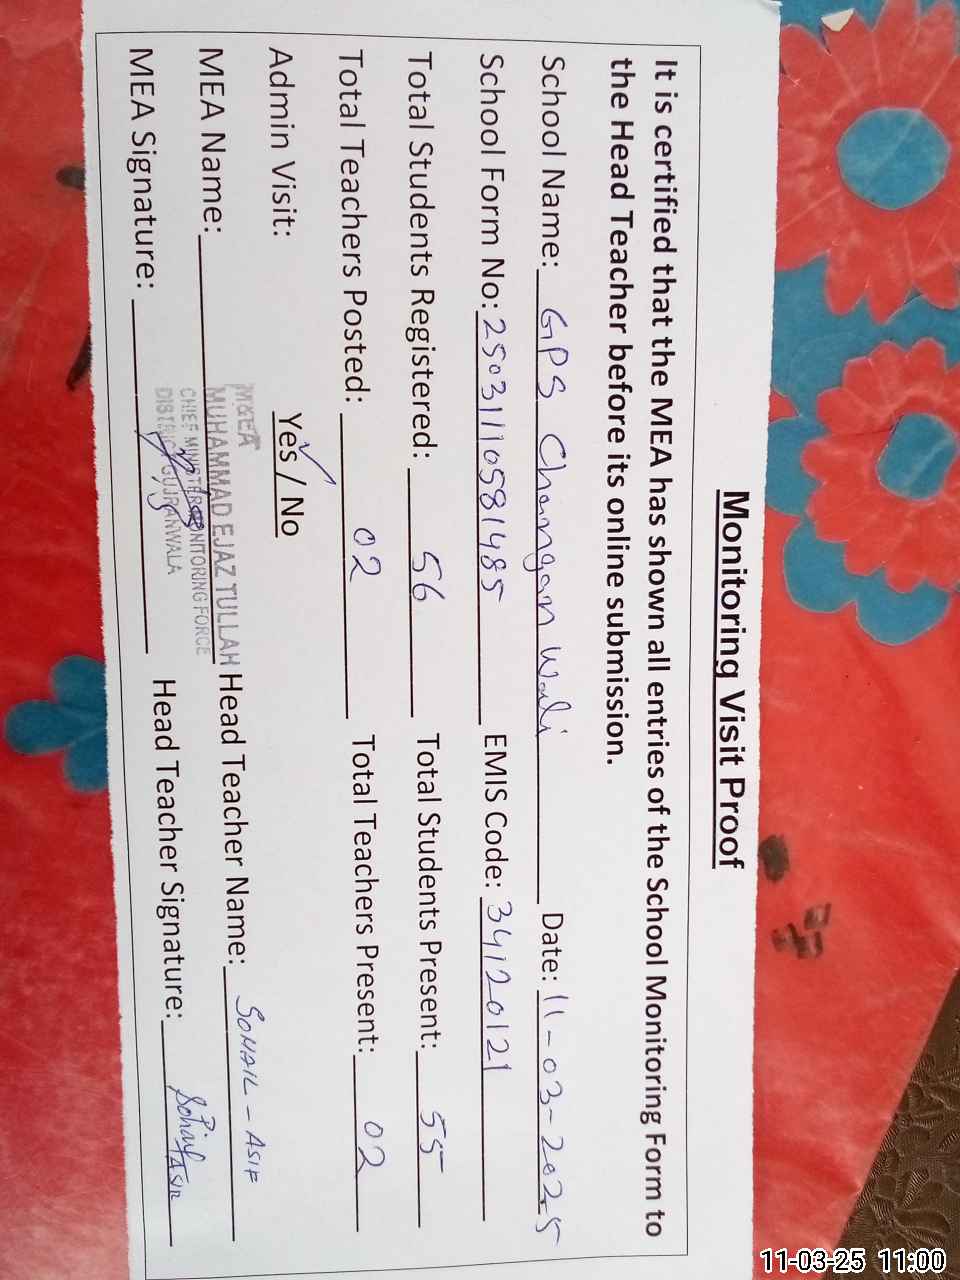 Monitoring Visit Proof
It is certified that the MEA has shown all entries of the School Monitoring Form to
the Head Teacher before its online submission.
School Name: GPS Changan Wali Date: 11-03-2025
School Form No: 25031110581485 EMIS Code: 34120121
Total Students Registered: 56 Total Students Present: 55
Total Teachers Posted: 02 Total Teachers Present: 02
Admin Visit: Yes / No
M&EA
MEA Name: MUHAMMAD EJAZ TULLAH Head Teacher Name: SOHAIL - ASIF
CHIEF MINISTER MONITORING FORCE
DISTRICT GUJRANWALA
MEA Signature: Head Teacher Signature: Sohail Asif
11-03-25 11:00